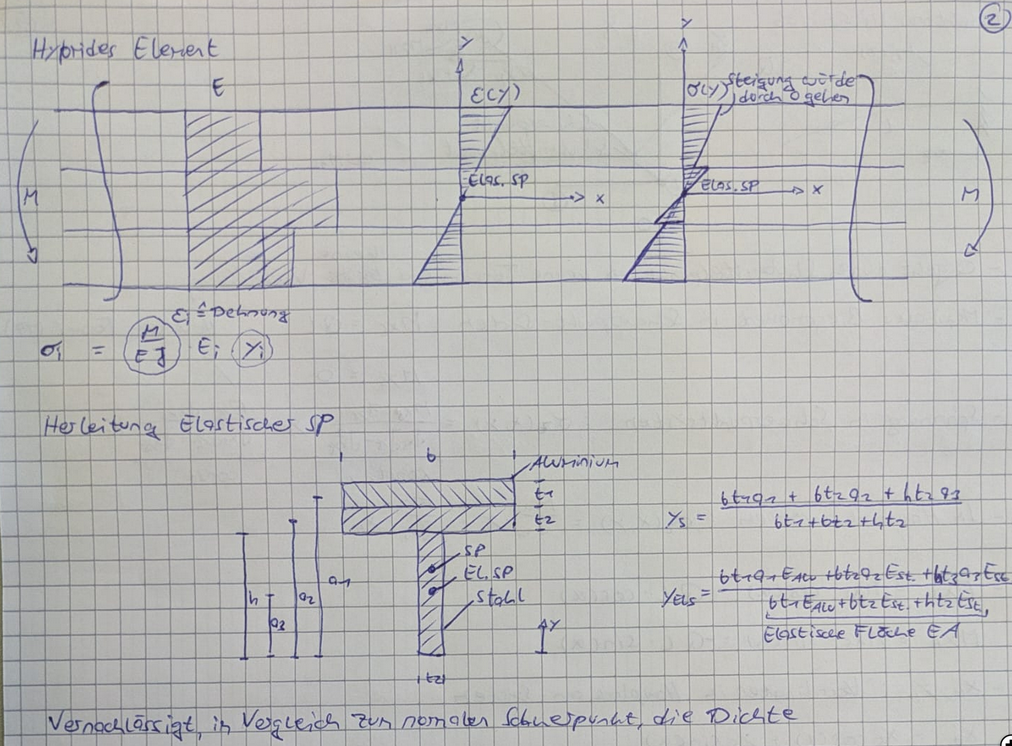 2
Hybrides Element
E
Y
ε(Y)
Elas. SP
x
Y
σ(Y)
Steigung würde
durch 0 gehen
Elas. SP
x
M
M
εi ≙ Dehnung
σi = M/EJ · Ei · Yi
Herleitung Elastischer SP
b
Aluminium
t1
t2
SP
El. SP
Stahl
h
a3
a2
a1
Y
t2
ys = (bt1a1 + bt2a2 + ht2a3) / (bt1 + bt2 + ht2)
yELS = (bt1a1EAlu + bt2a2Est. + ht2a3Est.) / (bt1EAlu + bt2Est. + ht2Est.)
Elastische Fläche EA
Vernachlässigt, in Vergleich zum normalen Schwerpunkt, die Dichte